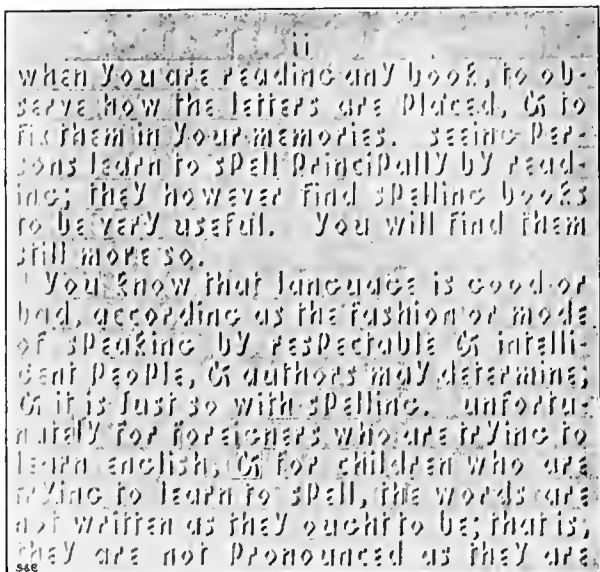 ii
when you are reading any book, to ob-
serve how the letters are placed, & to
fix them in your memories. seeing per-
sons learn to spell principally by read-
ing; they however find spelling books
to be very useful. You will find them
still more so.
You know that language is good or
bad, according as the fashion or mode
of speaking by respectable & intelli-
gent people, & authors may determine;
& it is just so with spelling. unfortu-
nately for foreigners who are trying to
learn english, & for children who are
trying to learn to spell, the words are
not written as they ought to be; that is,
they are not pronounced as they are